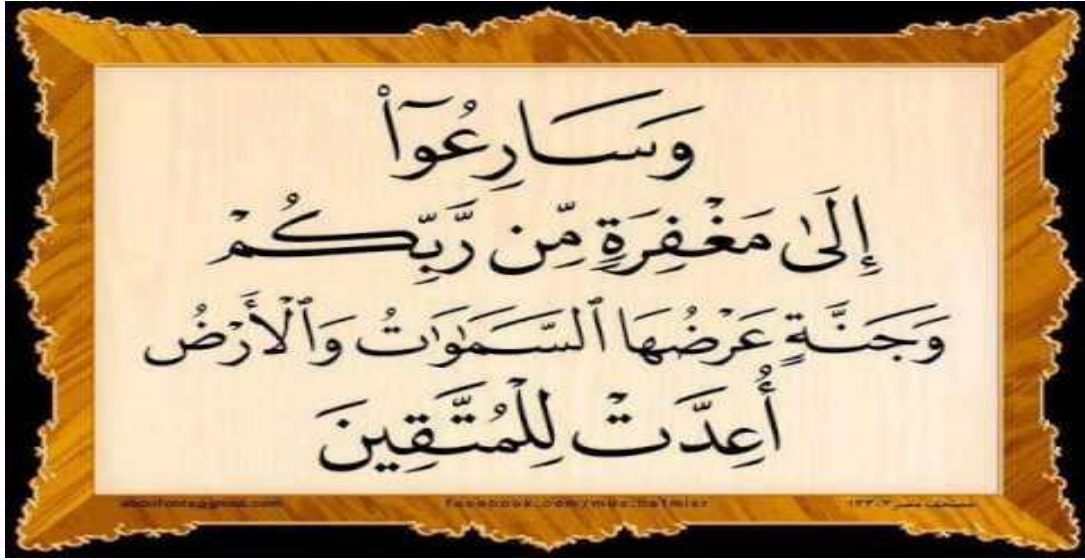 وَسَارِعُوٓا۟
إِلَىٰ مَغْفِرَةٍ مِّن رَّبِّكُمْ
وَجَنَّةٍ عَرْضُهَا ٱلسَّمَـٰوَٰتُ وَٱلْأَرْضُ
أُعِدَّتْ لِلْمُتَّقِينَ